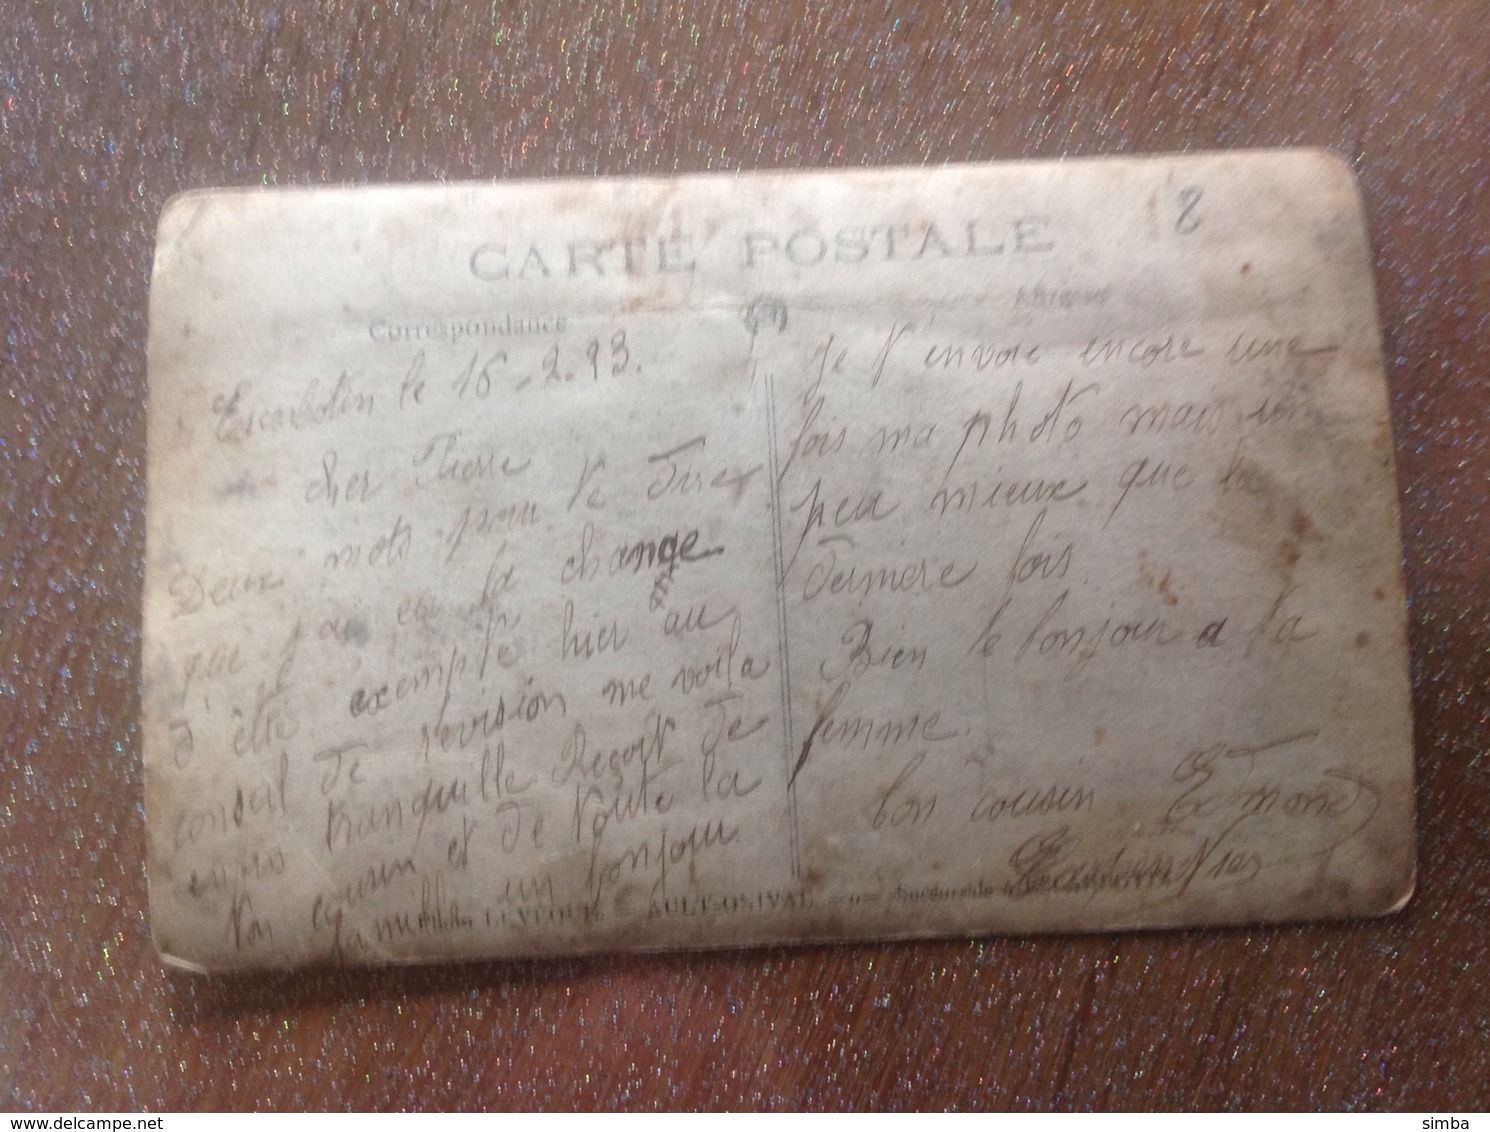 8
CARTE POSTALE
Correspondance
Adresse
Escarbotin le 16-2-23.
Cher Pierre
Deux mots pour te dire
que j'ai eu la change
d'être exempté hier au
conseil de révision me voila
enfin tranquille Reçoit de
ton cousin et de toute la
famille un bonjour
je t'envoie encore une
fois ma photo mais un
peu mieux que la
derniere fois.
Bien le bonjour a ta
femme.
ton cousin Edmond
LEVEQUE AULT-ONIVAL Succursale
delcampe.net
simba